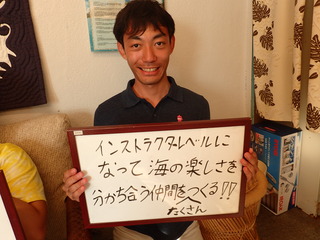 インストラクターレベルに
なって海の楽しさを
分かち合う仲間をつくる!!
たくさん